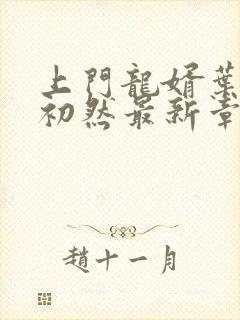 上門龍婿葉
初然最新章
趙十一月